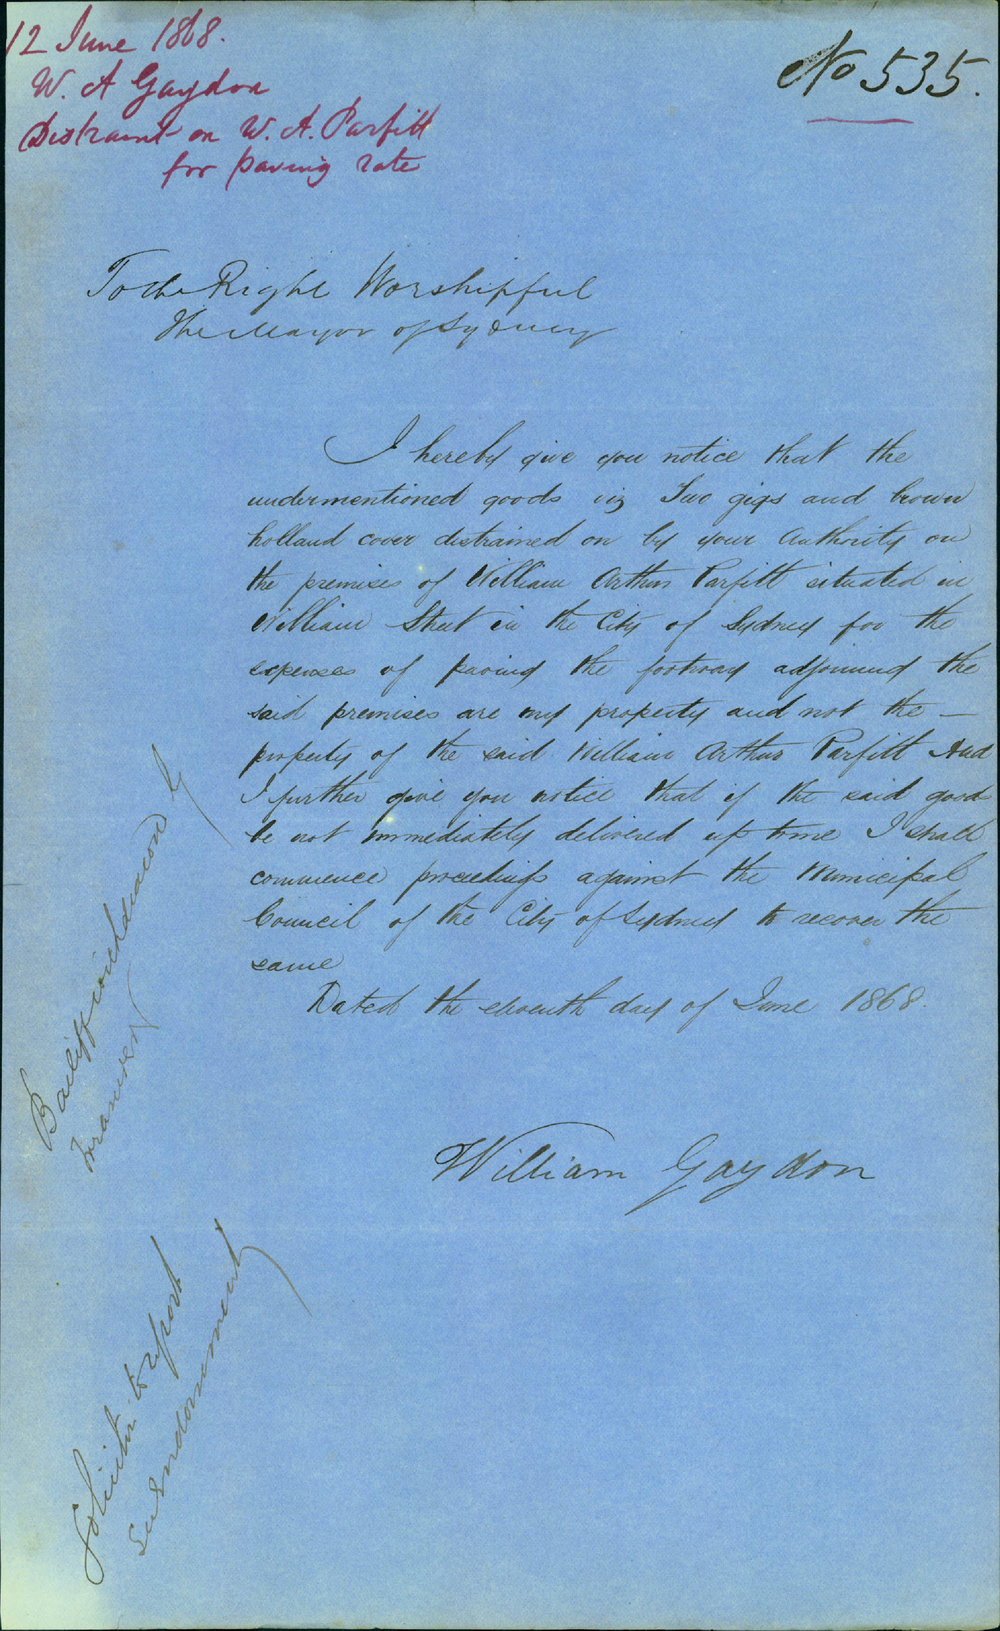 12 June 1868.
W. A Gaydon
Distraint on W. A. Parfitt
for paving rate
No 535.
To the Right Worshipful
The Mayor of Sydney
I hereby give you notice that the
undermentioned goods viz Two gigs and brown
holland cover distrained on by your Authority on
the premises of William Arthur Parfitt situated in
William Street in the City of Sydney for the
expenses of paving the footway adjoining the
said premises are my property and not the –
property of the said William Arthur Parfitt And
I further give you notice that if the said goods
be not immediately delivered up to me I shall
commence proceedings against the Municipal
Council of the City of Sydney to recover the
same
Dated the eleventh day of June 1868.
William Gaydon
Bailiff
Solicitor to report
See endorsement